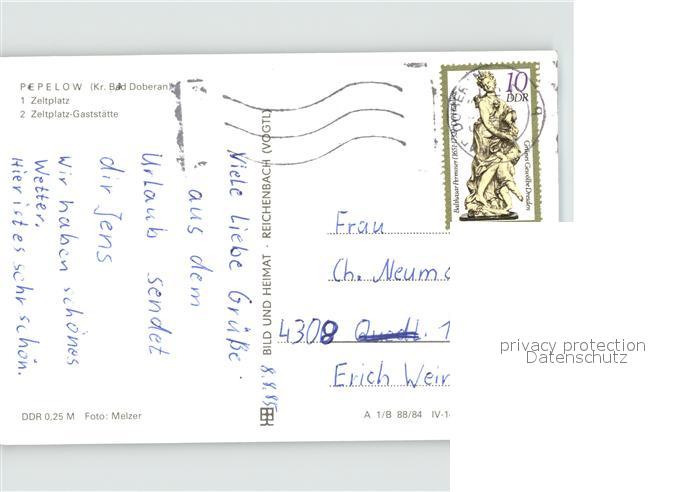 PEPELOW (Kr. Bad Doberan)
1 Zeltplatz
2 Zeltplatz-Gaststätte
Viele liebe Grüße
aus dem
Urlaub sendet
dir Jens
Wir haben schönes
Wetter.
Hier ist es sehr schön.
8.8.85
DDR 0,25 M Foto: Melzer
BILD UND HEIMAT · REICHENBACH (VOGTL)
A 1/B 88/84 IV-14
10
DDR
Balthasar Permoser (1651-1732)
Grünes Gewölbe Dresden
Frau
Ch. Neuma
4308 Quedl. 1
Erich Wein
privacy protection
Datenschutz